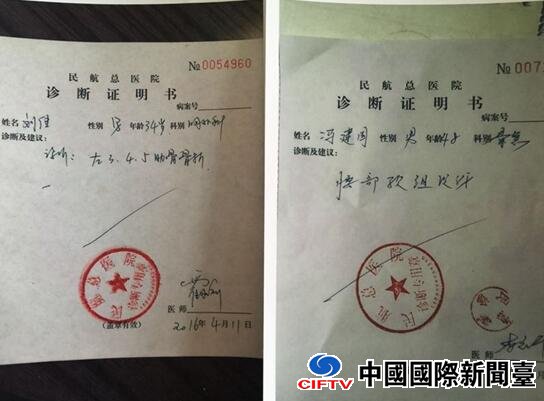 №0054960
民航总医院
诊断证明书
病案号
姓名 刘维 性别 男 年龄 34岁 科别
诊断及建议:
诊断: 左3.4.5肋骨骨折
民航总医院
医师
(盖章有效)
2016年4月11日
№007
民航总医院
诊断证明书
病案号
姓名 冯建国 性别 男 年龄 48 科别
诊断及建议:
腰部软组织伤
民航总医院
医师
CIFTV
中國國際新聞臺